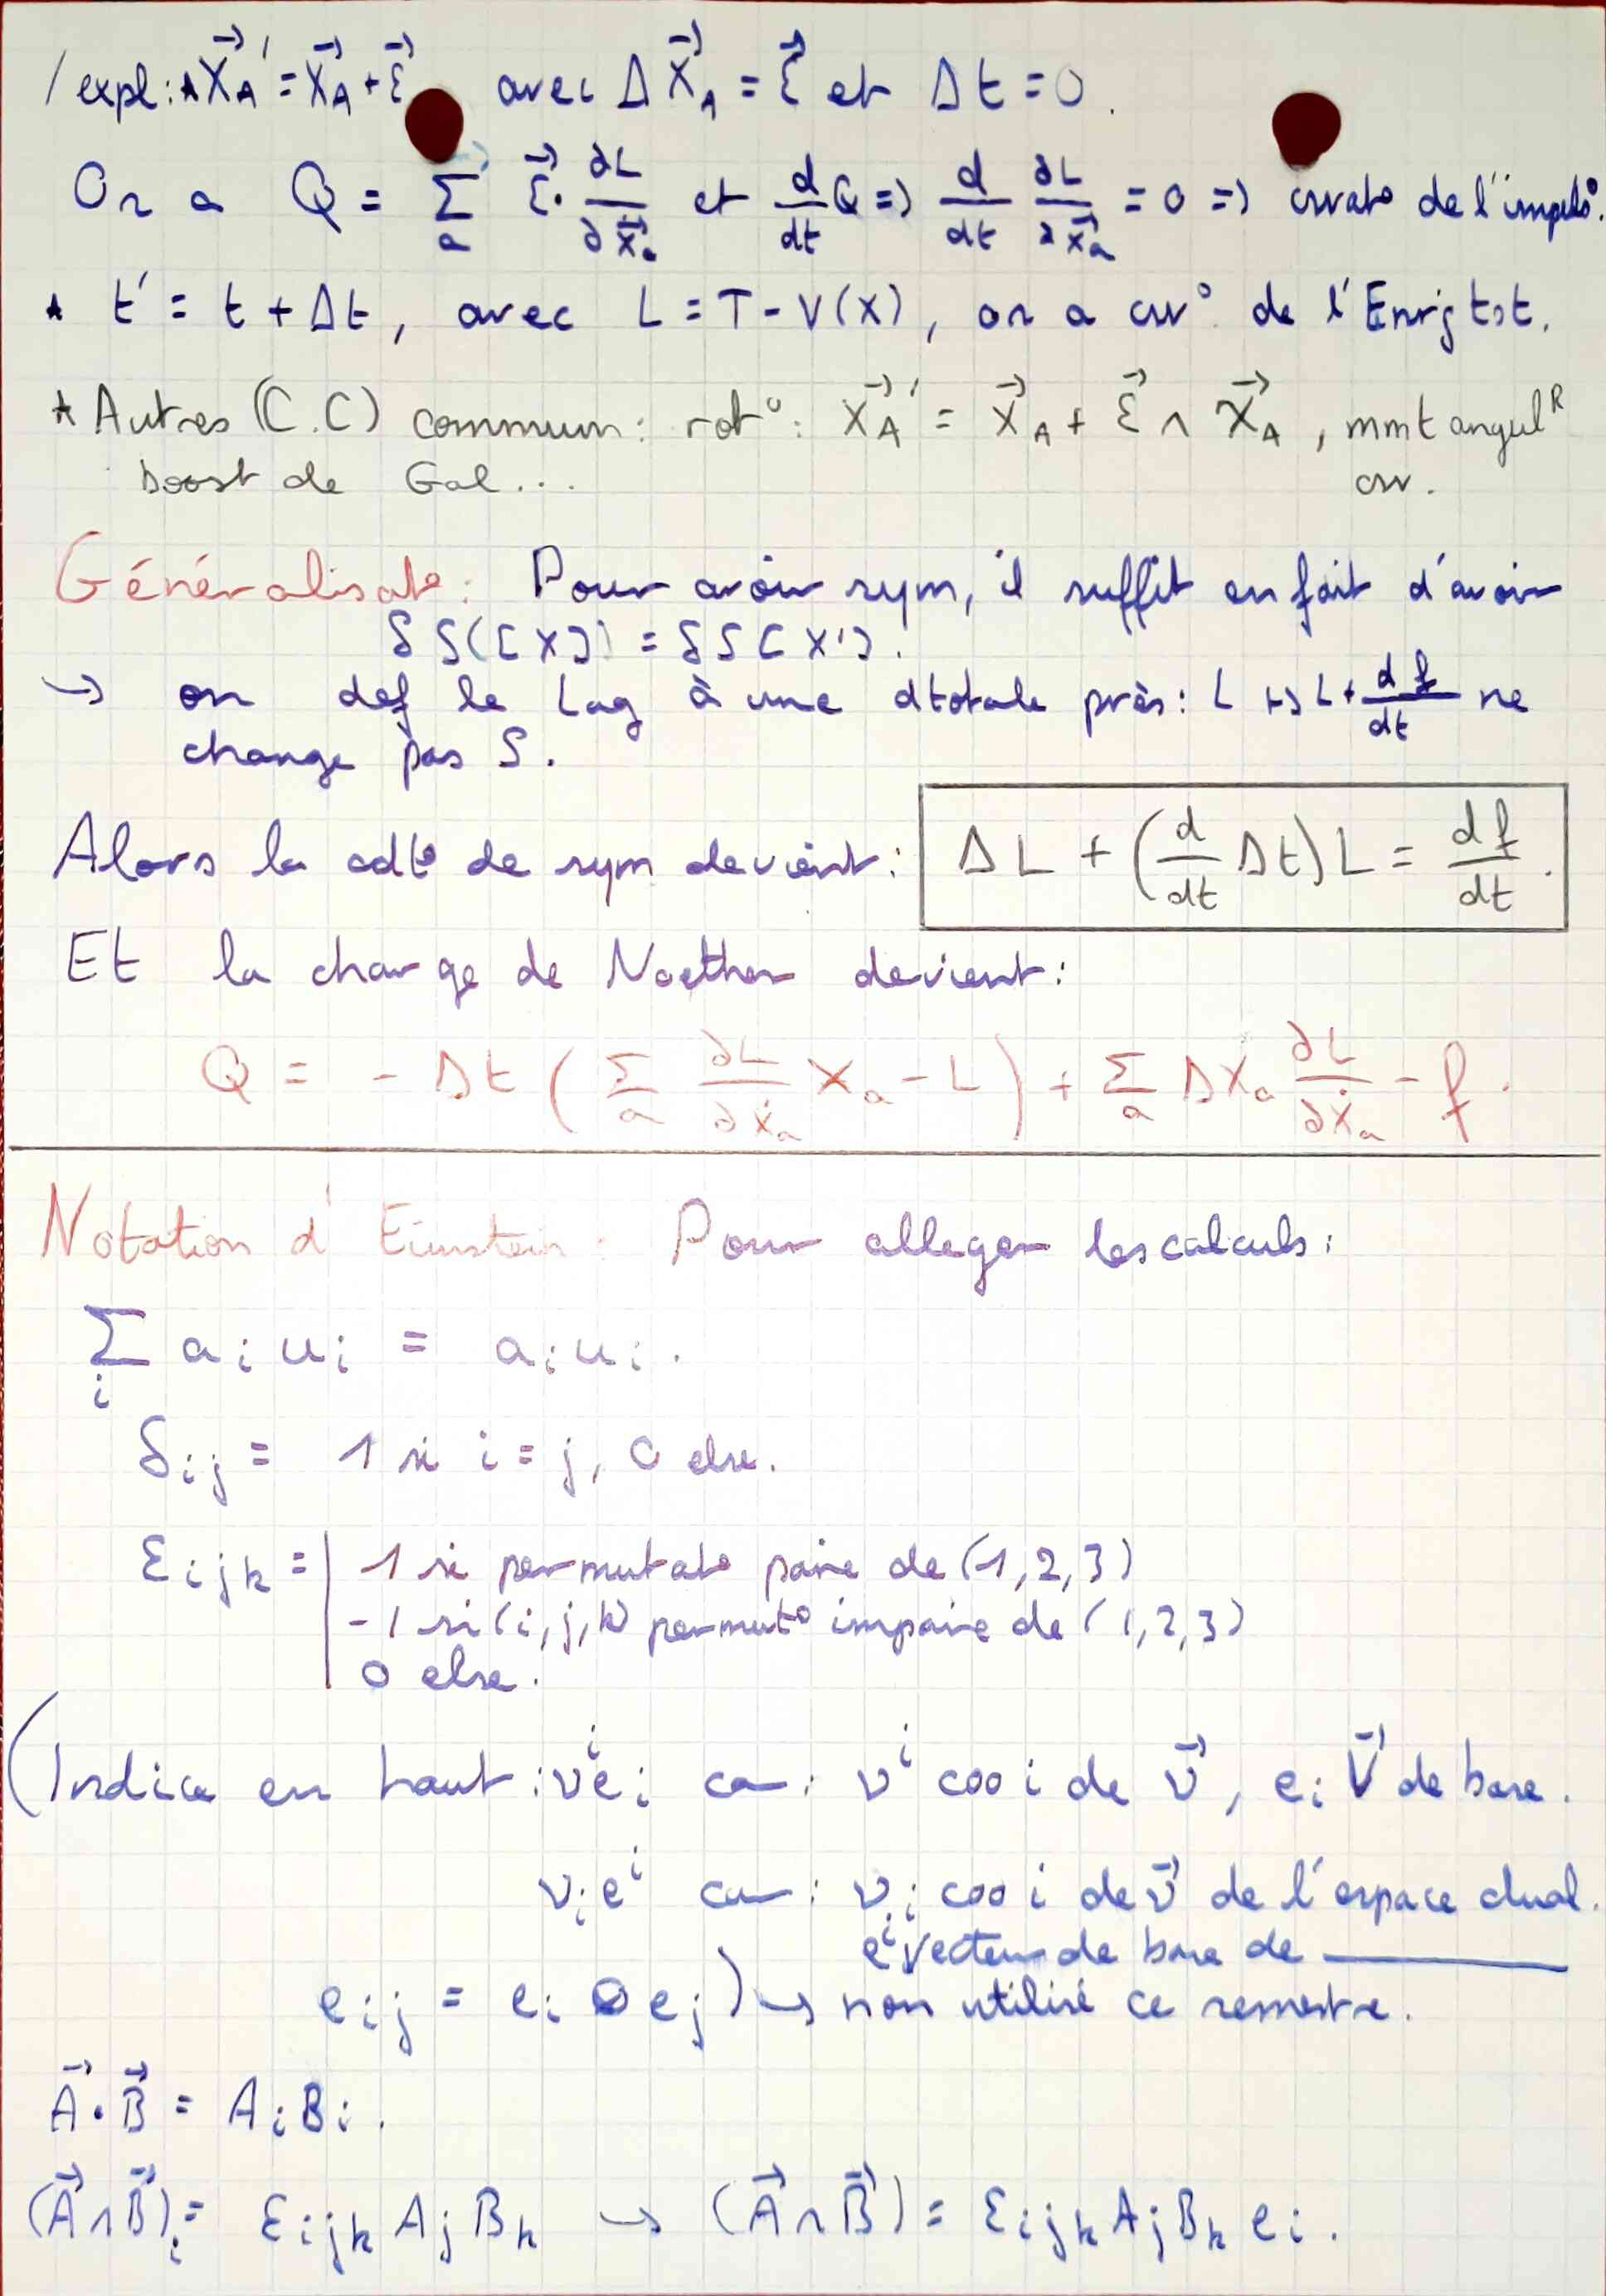 /expl: * X⃗_A' = X⃗_A + ε⃗ avec Δx⃗_A = ε⃗ et Δt = 0.
On a Q = Σ_a ε⃗·∂L/∂ẋ⃗_a et d/dt Q ⇒ d/dt ∂L/∂ẋ⃗_a = 0 ⇒ csvat° de l'impuls°.
* t' = t + Δt, avec L = T - V(x), on a csv° de l'Energ tot.
* Autres (C.C) commun: rot°: X⃗_A' = X⃗_A + ε⃗ ∧ X⃗_A, mmt angul^R
boost de Gal... csv.
Généralisat°: Pour avoir sym, il suffit en fait d'avoir
δS([X]) = δS[X'].
→ on def le Lag à une dtotale près: L ↦ L + df/dt ne
change pas S.
Alors la cdt° de sym devient: ΔL + (d/dt Δt)L = df/dt.
Et la charge de Noether devient:
Q = -Δt (Σ_a ∂L/∂ẋ_a ẋ_a - L) + Σ_a Δx_a ∂L/∂ẋ_a - f.
Notation d'Einstein: Pour alleger les calculs:
Σ_i a_i u_i = a_i u_i.
δ_ij = 1 si i = j, 0 else.
ε_ijk = | 1 si permutat° paire de (1,2,3)
-1 si (i,j,k) permut° impaire de (1,2,3)
0 else.
(Indice en haut: v^i e_i car: v^i coo i de v⃗, e_i V⃗ de base.
v_i e^i car: v_i coo i de v⃗ de l'espace dual.
e^i vecteur de base de ————
e_ij = e_i ⊗ e_j) → non utilisé ce semestre.
A⃗·B⃗ = A_i B_i.
(A⃗∧B⃗)_i = ε_ijk A_j B_k → (A⃗∧B⃗) = ε_ijk A_j B_k e_i.